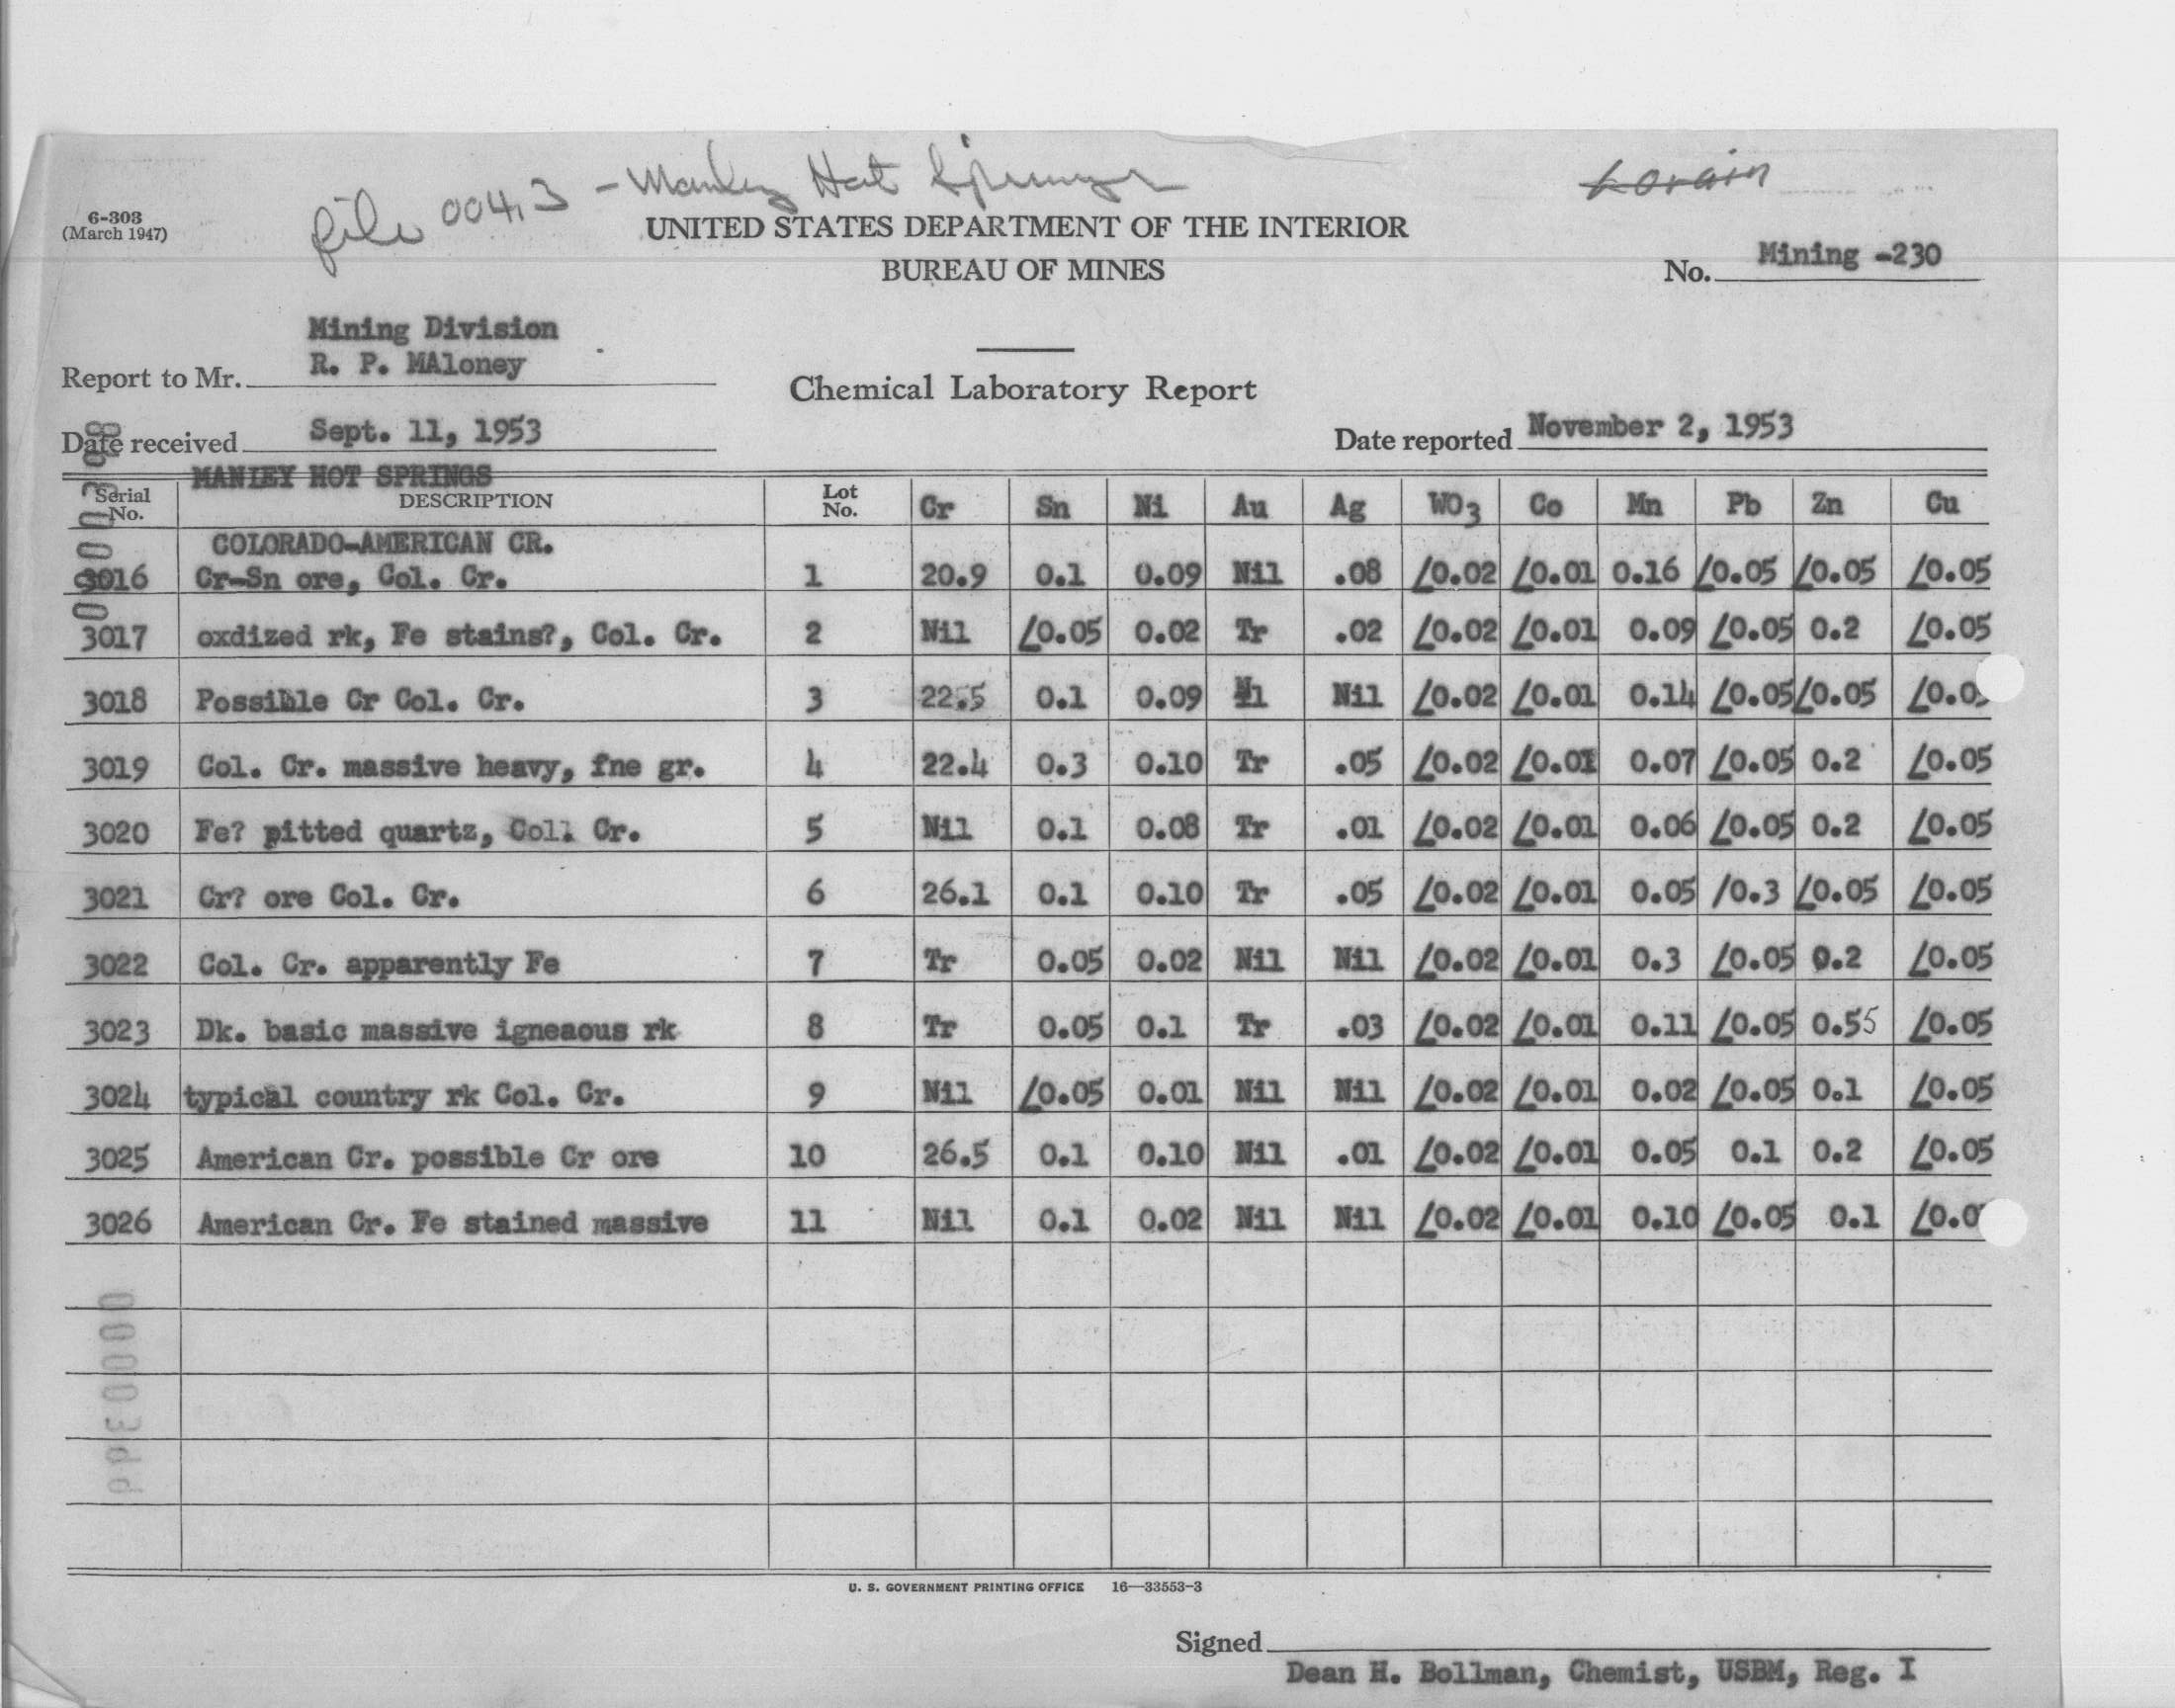 file 004.3 - Manley Hot Springs
Lorain
6-303
(March 1947)
UNITED STATES DEPARTMENT OF THE INTERIOR
BUREAU OF MINES
No. Mining -230
Mining Division
Report to Mr. R. P. MAloney
Chemical Laboratory Report
Date received Sept. 11, 1953
Date reported November 2, 1953
MANLEY HOT SPRINGS
Serial No. DESCRIPTION Lot No. Cr Sn Ni Au Ag WO3 Co Mn Pb Zn Cu
COLORADO-AMERICAN CR.
3016 Cr-Sn ore, Col. Cr. 1 20.9 0.1 0.09 Nil .08 /0.02 /0.01 0.16 /0.05 /0.05 /0.05
3017 oxdized rk, Fe stains?, Col. Cr. 2 Nil /0.05 0.02 Tr .02 /0.02 /0.01 0.09 /0.05 0.2 /0.05
3018 Possible Cr Col. Cr. 3 22.5 0.1 0.09 Nil /0.02 /0.01 0.14 /0.05 /0.05
3019 Col. Cr. massive heavy, fne gr. 4 22.4 0.3 0.10 Tr .05 /0.02 /0.01 0.07 /0.05 0.2 /0.05
3020 Fe? pitted quartz, Col. Cr. 5 Nil 0.1 0.08 Tr .01 /0.02 /0.01 0.06 /0.05 0.2 /0.05
3021 Cr? ore Col. Cr. 6 26.1 0.1 0.10 Tr .05 /0.02 /0.01 0.05 /0.3 /0.05 /0.05
3022 Col. Cr. apparently Fe 7 Tr 0.05 0.02 Nil Nil /0.02 /0.01 0.3 /0.05 0.2 /0.05
3023 Dk. basic massive igneaous rk 8 Tr 0.05 0.1 Tr .03 /0.02 /0.01 0.11 /0.05 0.55 /0.05
3024 typical country rk Col. Cr. 9 Nil /0.05 0.01 Nil Nil /0.02 /0.01 0.02 /0.05 0.1 /0.05
3025 American Cr. possible Cr ore 10 26.5 0.1 0.10 Nil .01 /0.02 /0.01 0.05 0.1 0.2 /0.05
3026 American Cr. Fe stained massive 11 Nil 0.1 0.02 Nil Nil /0.02 /0.01 0.10 /0.05 0.1
U. S. GOVERNMENT PRINTING OFFICE 16—33553-3
Signed
Dean H. Bollman, Chemist, USBM, Reg. I